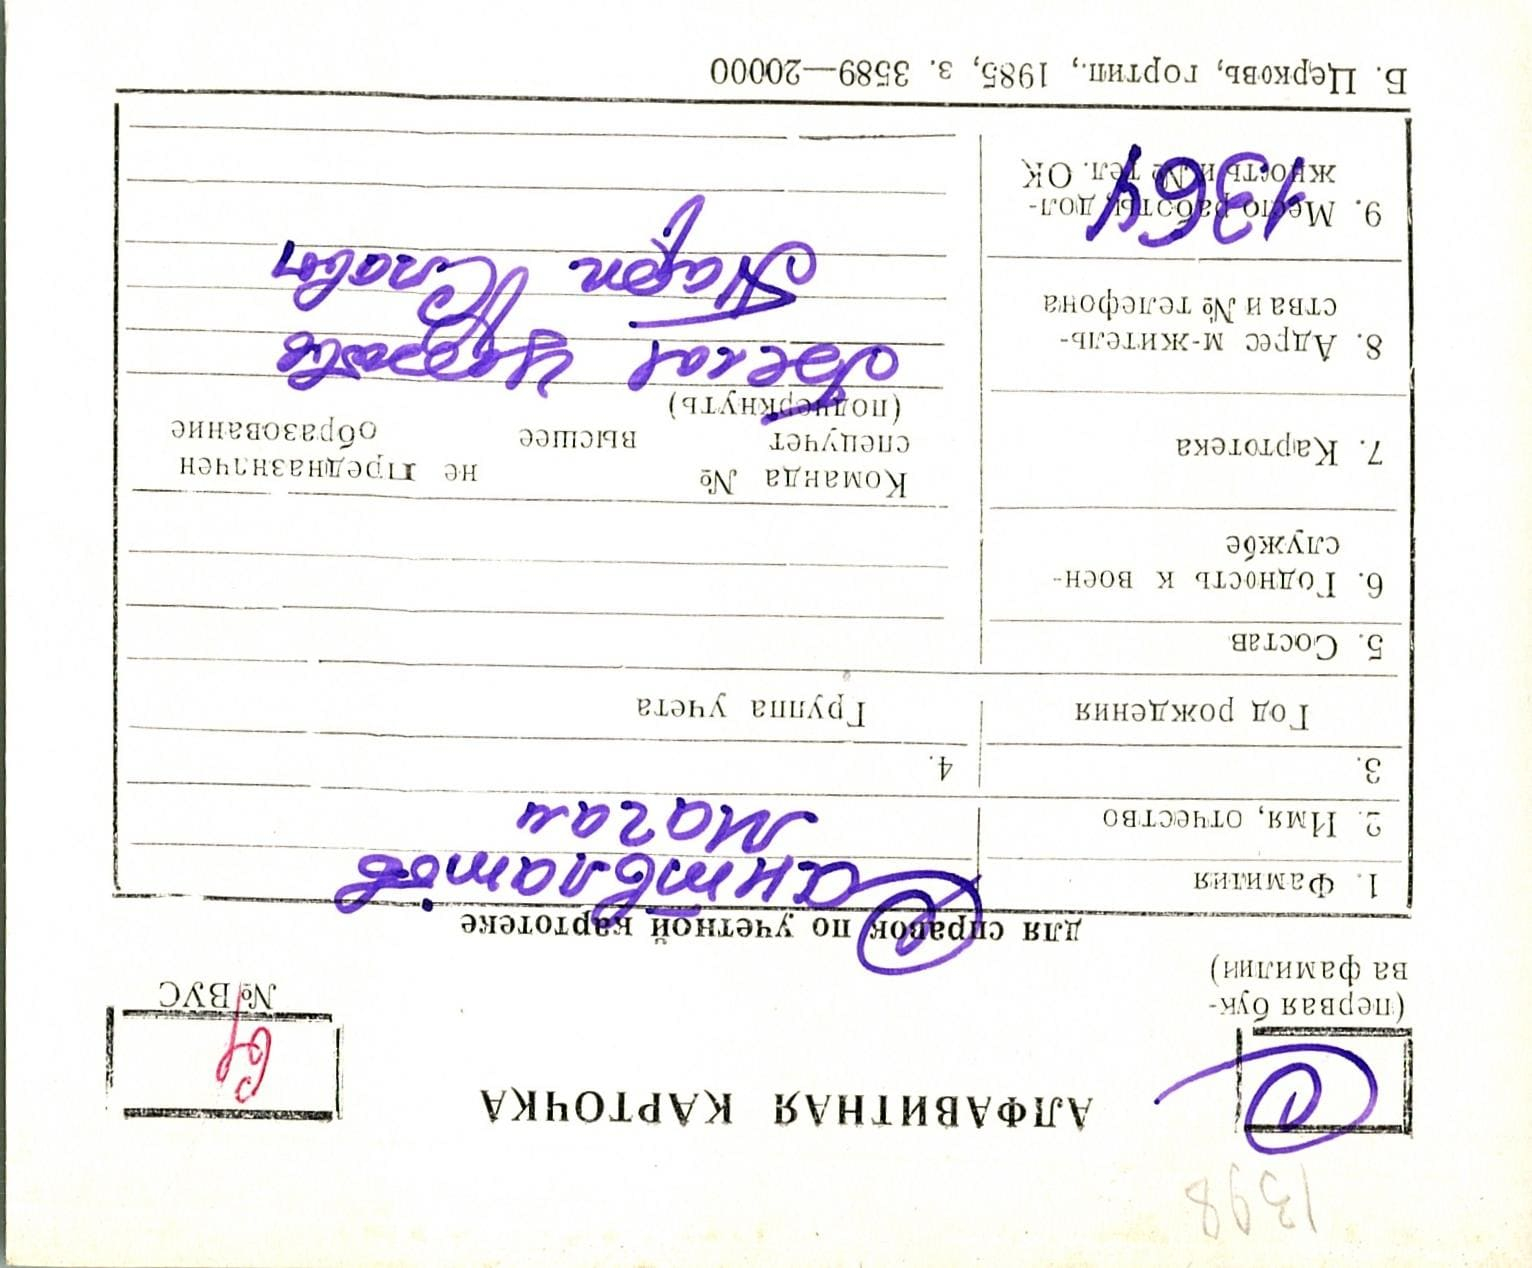 1398
АЛФАВИТНАЯ КАРТОЧКА
С
64
(первая бук-
ва фамилии)
№ ВУС
для справок по учетной картотеке
1. Фамилия
2. Имя, отчество
Магам
3.
4.
Год рождения
Группа учета
5. Состав
6. Годность к воен-
службе
7. Картотека
Команда № не предназначен
спецучет высшее образование
(подчеркнуть)
8. Адрес м-житель-
ства и № телефона
9. Место работы, дол-
жность и № тел. ОК
1364
Б. Церковь, гортип., 1985, з. 3589—20000